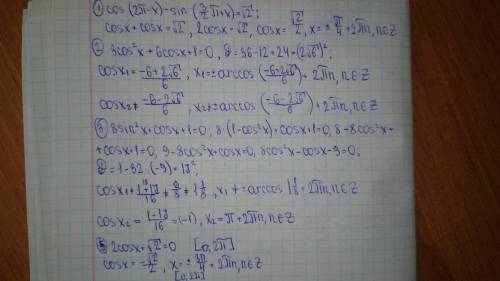 ① cos(2π-x)-sin(7/2π+x)=√2;
cosx+cosx=√2, 2cosx=√2, cosx=√2/2, x=±π/4+2πn, n∈Z
② 3cos²x+6cosx+1=0, D=36-12=24=(2√6)²;
cosx₁=(-6+2√6)/6, x₁=±arccos((-6+2√6)/6)+2πn, n∈Z
cosx₂=(-6-2√6)/6, x₂≠±arccos((-6-2√6)/6)+2πn, n∈Z
8sin²x+cosx+1=0, 8·(1-cos²x)+cosx+1=0, 8-8cos²x+
+cosx+1=0, 9-8cos²x+cosx=0, 8cos²x-cosx-9=0;
D=1-32·(-9)=17²;
cosx₁≠(1+17)/16≠9/8≠1 1/8, x₁≠±arccos 1 1/8+2πn, n∈Z
cosx₂=(1-17)/16=(-1), x₂=π+2πn, n∈Z
2cosx+√2=0 [0;2π]
cosx=-√2/2, x=±3π/4+2πn, n∈Z
[0;2π]